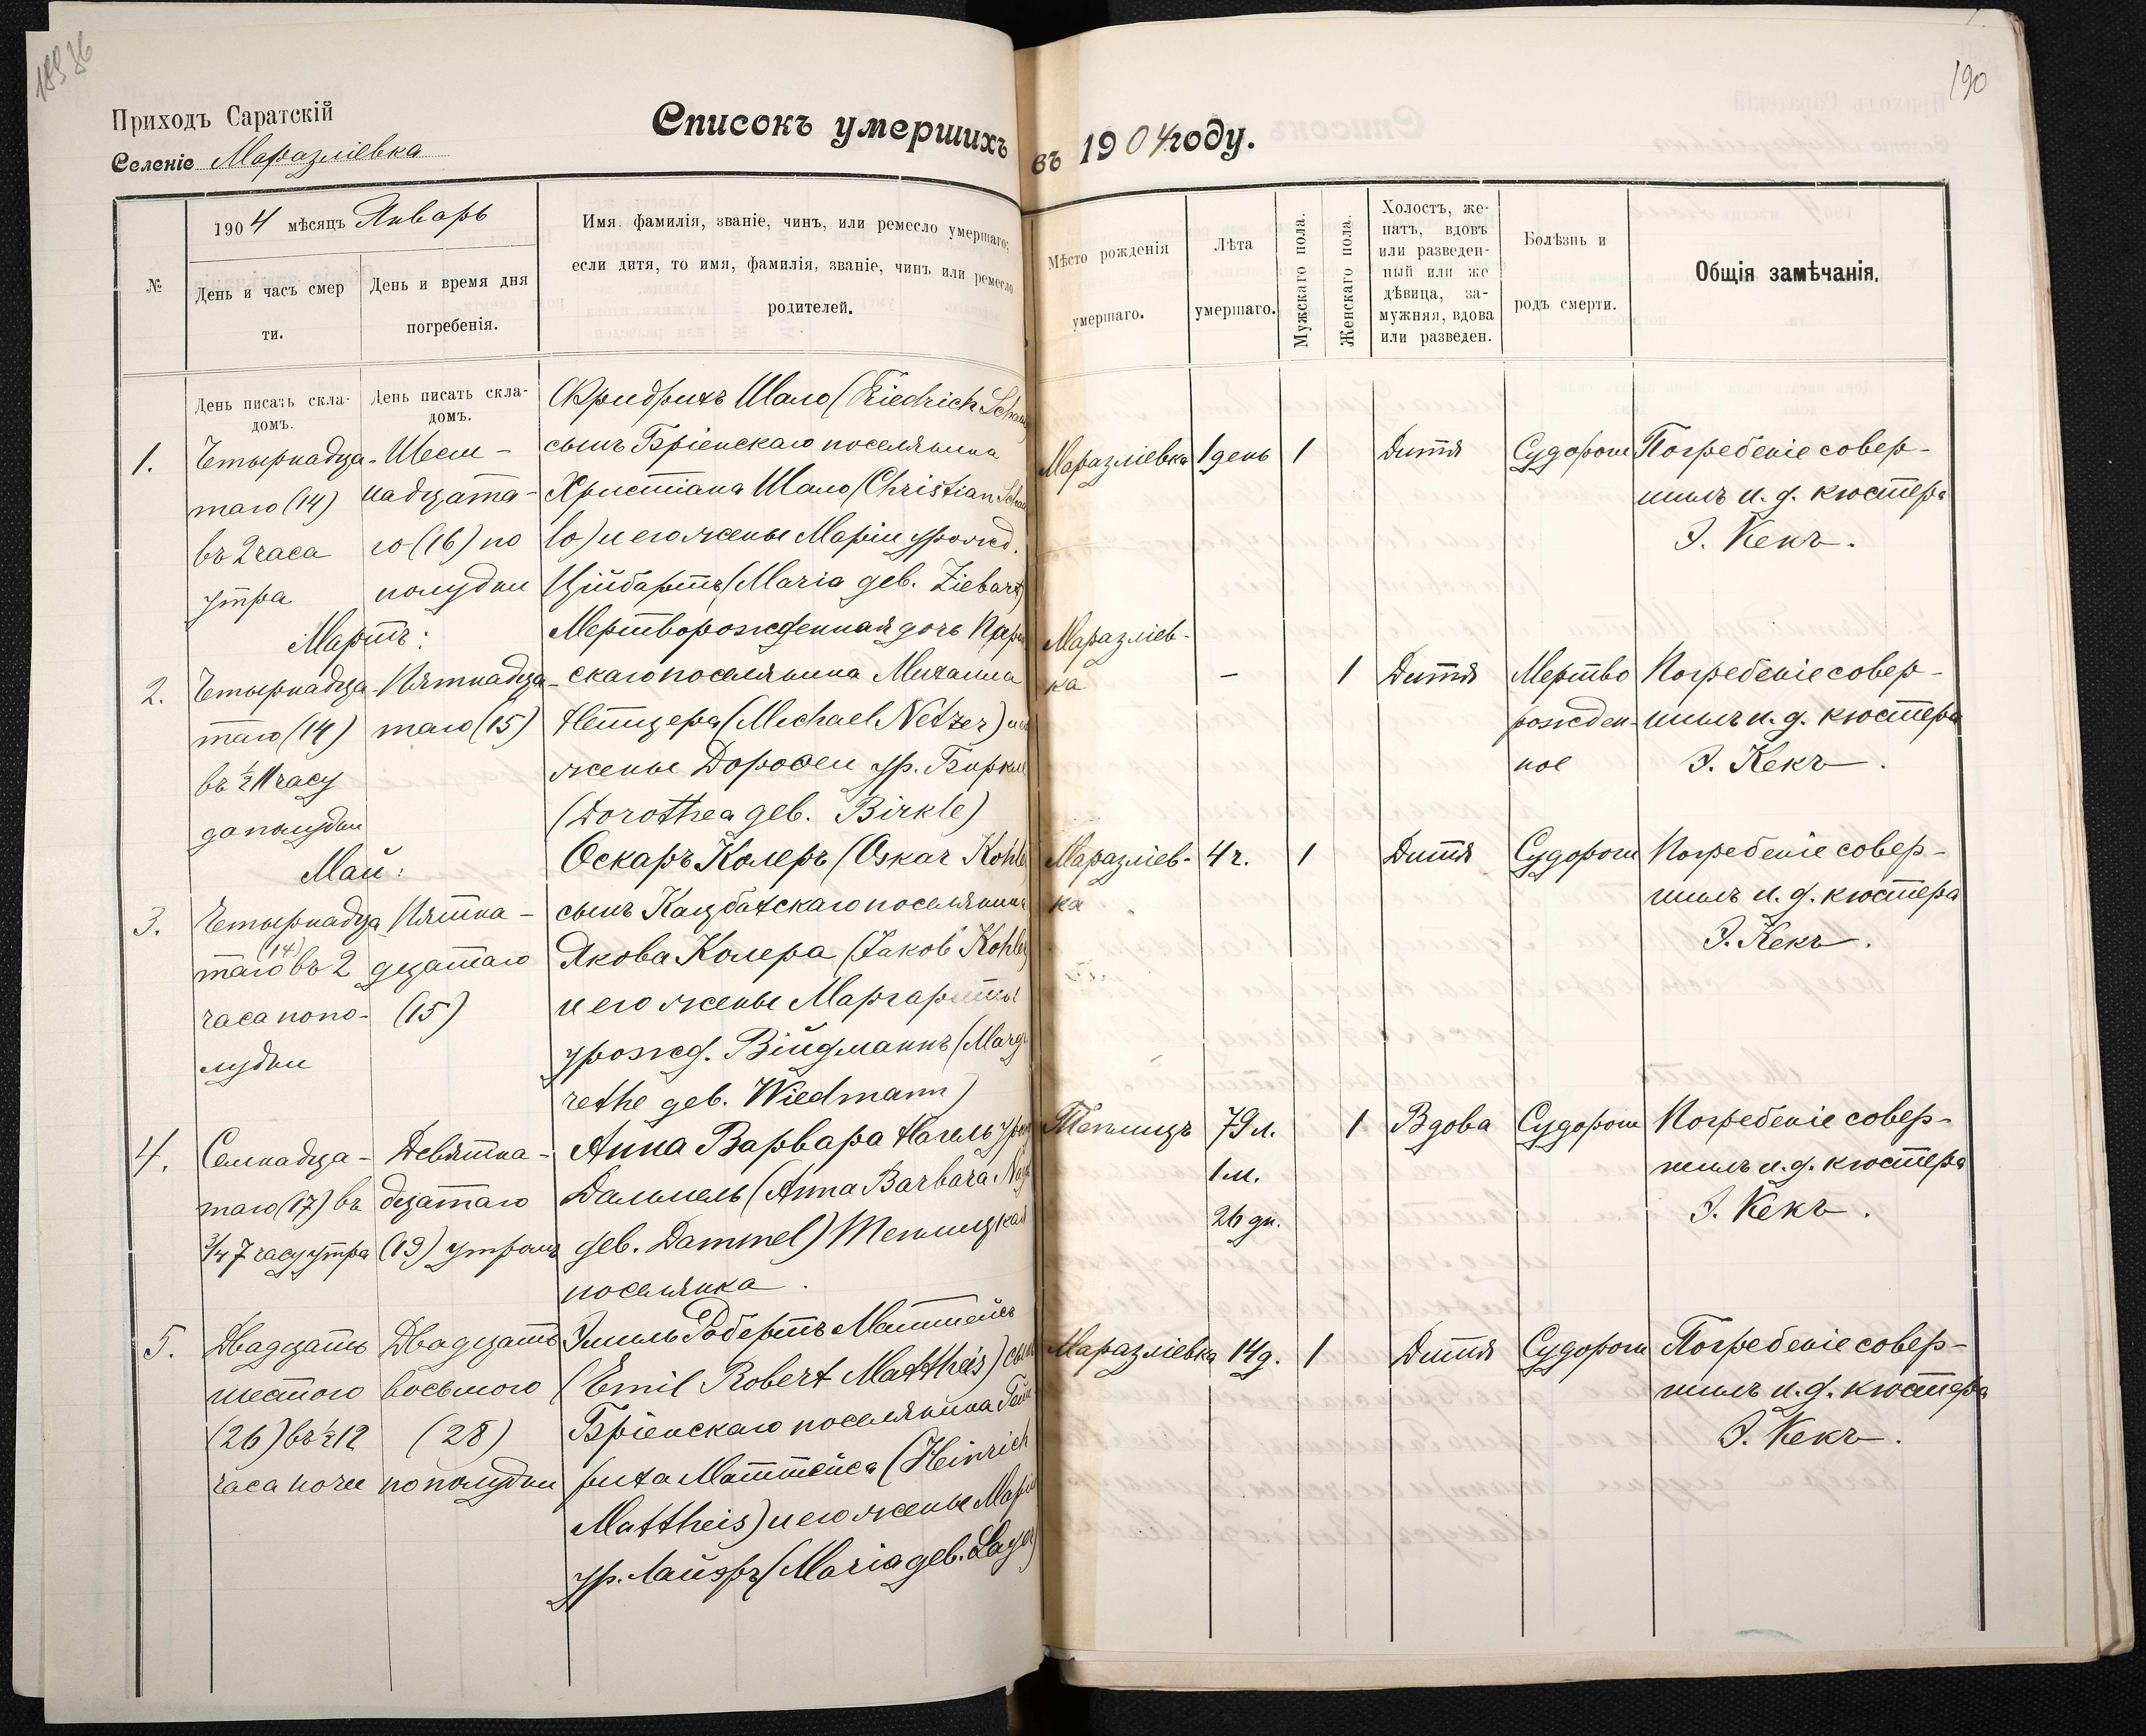 190
Приходъ Саратскій
Селеніе Маразліевка
Списокъ умершихъ въ 1904 году.
№
1904 мѣсяцъ Январь
День и часъ смер
ти.
День и время дня
погребенія.
Имя, фамилія, званіе, чинъ, или ремесло умершаго;
если дитя, то имя, фамилія, званіе, чинъ или ремесло
родителей.
Мѣсто рожденія
умершаго.
Лѣта
умершаго.
Мужскаго пола.
Женскаго пола.
Холостъ, же-
натъ, вдовъ
или разведен-
ный или же
дѣвица, за-
мужняя, вдова
или разведен.
Болѣзнь и
родъ смерти.
Общія замѣчанія.
День писать скла-
домъ.
День писать скла-
домъ.
1.
Четырнадца-
таго (14)
въ 2 часа
утра
Шест-
надцата-
го (16) по
полудни
Фридрихъ Шало (Friedrich
сынъ Бріенскаго поселянина
Христіана Шало (Christian
lo) и его жены Маріи урожд.
Ційбартъ (Maria geb. Ziebart)
Маразліевка
1 день
1
Дитя
Судороги
Погребеніе совер-
шилъ и. д. кюстера
І. Кекъ.
Мартъ:
2.
Четырнадца-
таго (14)
въ ½ 11 часу
до полудни
Пятнадца-
таго (15)
Мертворожденная дочь
скаго поселянина Михаила
Нетцера (Michael Netzer)
жены Дорофеи ур. Биркле
(Dorothea geb. Birkle)
Маразліев-
ка
-
1
Дитя
Мертво
рожден-
ное
Погребеніе совер-
шилъ и. д. кюстера
І. Кекъ.
Май:
3.
Четырнадца
таго (14) въ 2
часа попо-
лудни
Пятна-
дцатаго
(15)
Оскаръ Колеръ (Oskar
сынъ Кацбахскаго поселянина
Якова Колера (Jakob
и его жены Маргариты
урожд. Війдманнъ (Marga
rethe geb. Wiedmann)
Маразліев-
ка
4 ч.
1
Дитя
Судороги
Погребеніе совер-
шилъ и. д. кюстера
І. Кекъ.
4.
Семнадца-
таго (17) въ
¾ 7 часу утра
Девятна-
дцатаго
(19) утромъ
Анна Варвара Нагель
Даммель (Anna Barbara
geb. Dammel) Теплицкая
поселянка.
Теплицъ
79 л.
1 м.
26 дн.
1
Вдова
Судороги
Погребеніе совер-
шилъ и. д. кюстера
І. Кекъ.
5.
Двадцать
шестого
(26) въ ½ 12
часа ночи
Двадцать
восьмого
(28)
по полудни
Эмиль Робертъ Маттейсъ
(Emil Robert Mattheis) сынъ
Бріенскаго поселянина Гейн
риха Маттейса (Heinrich
Mattheis) и его жены Маріи
ур. Лайэръ (Maria geb. Layer)
Маразліевка
14 д.
1
Дитя
Судороги
Погребеніе совер-
шилъ и. д. кюстера
І. Кекъ.